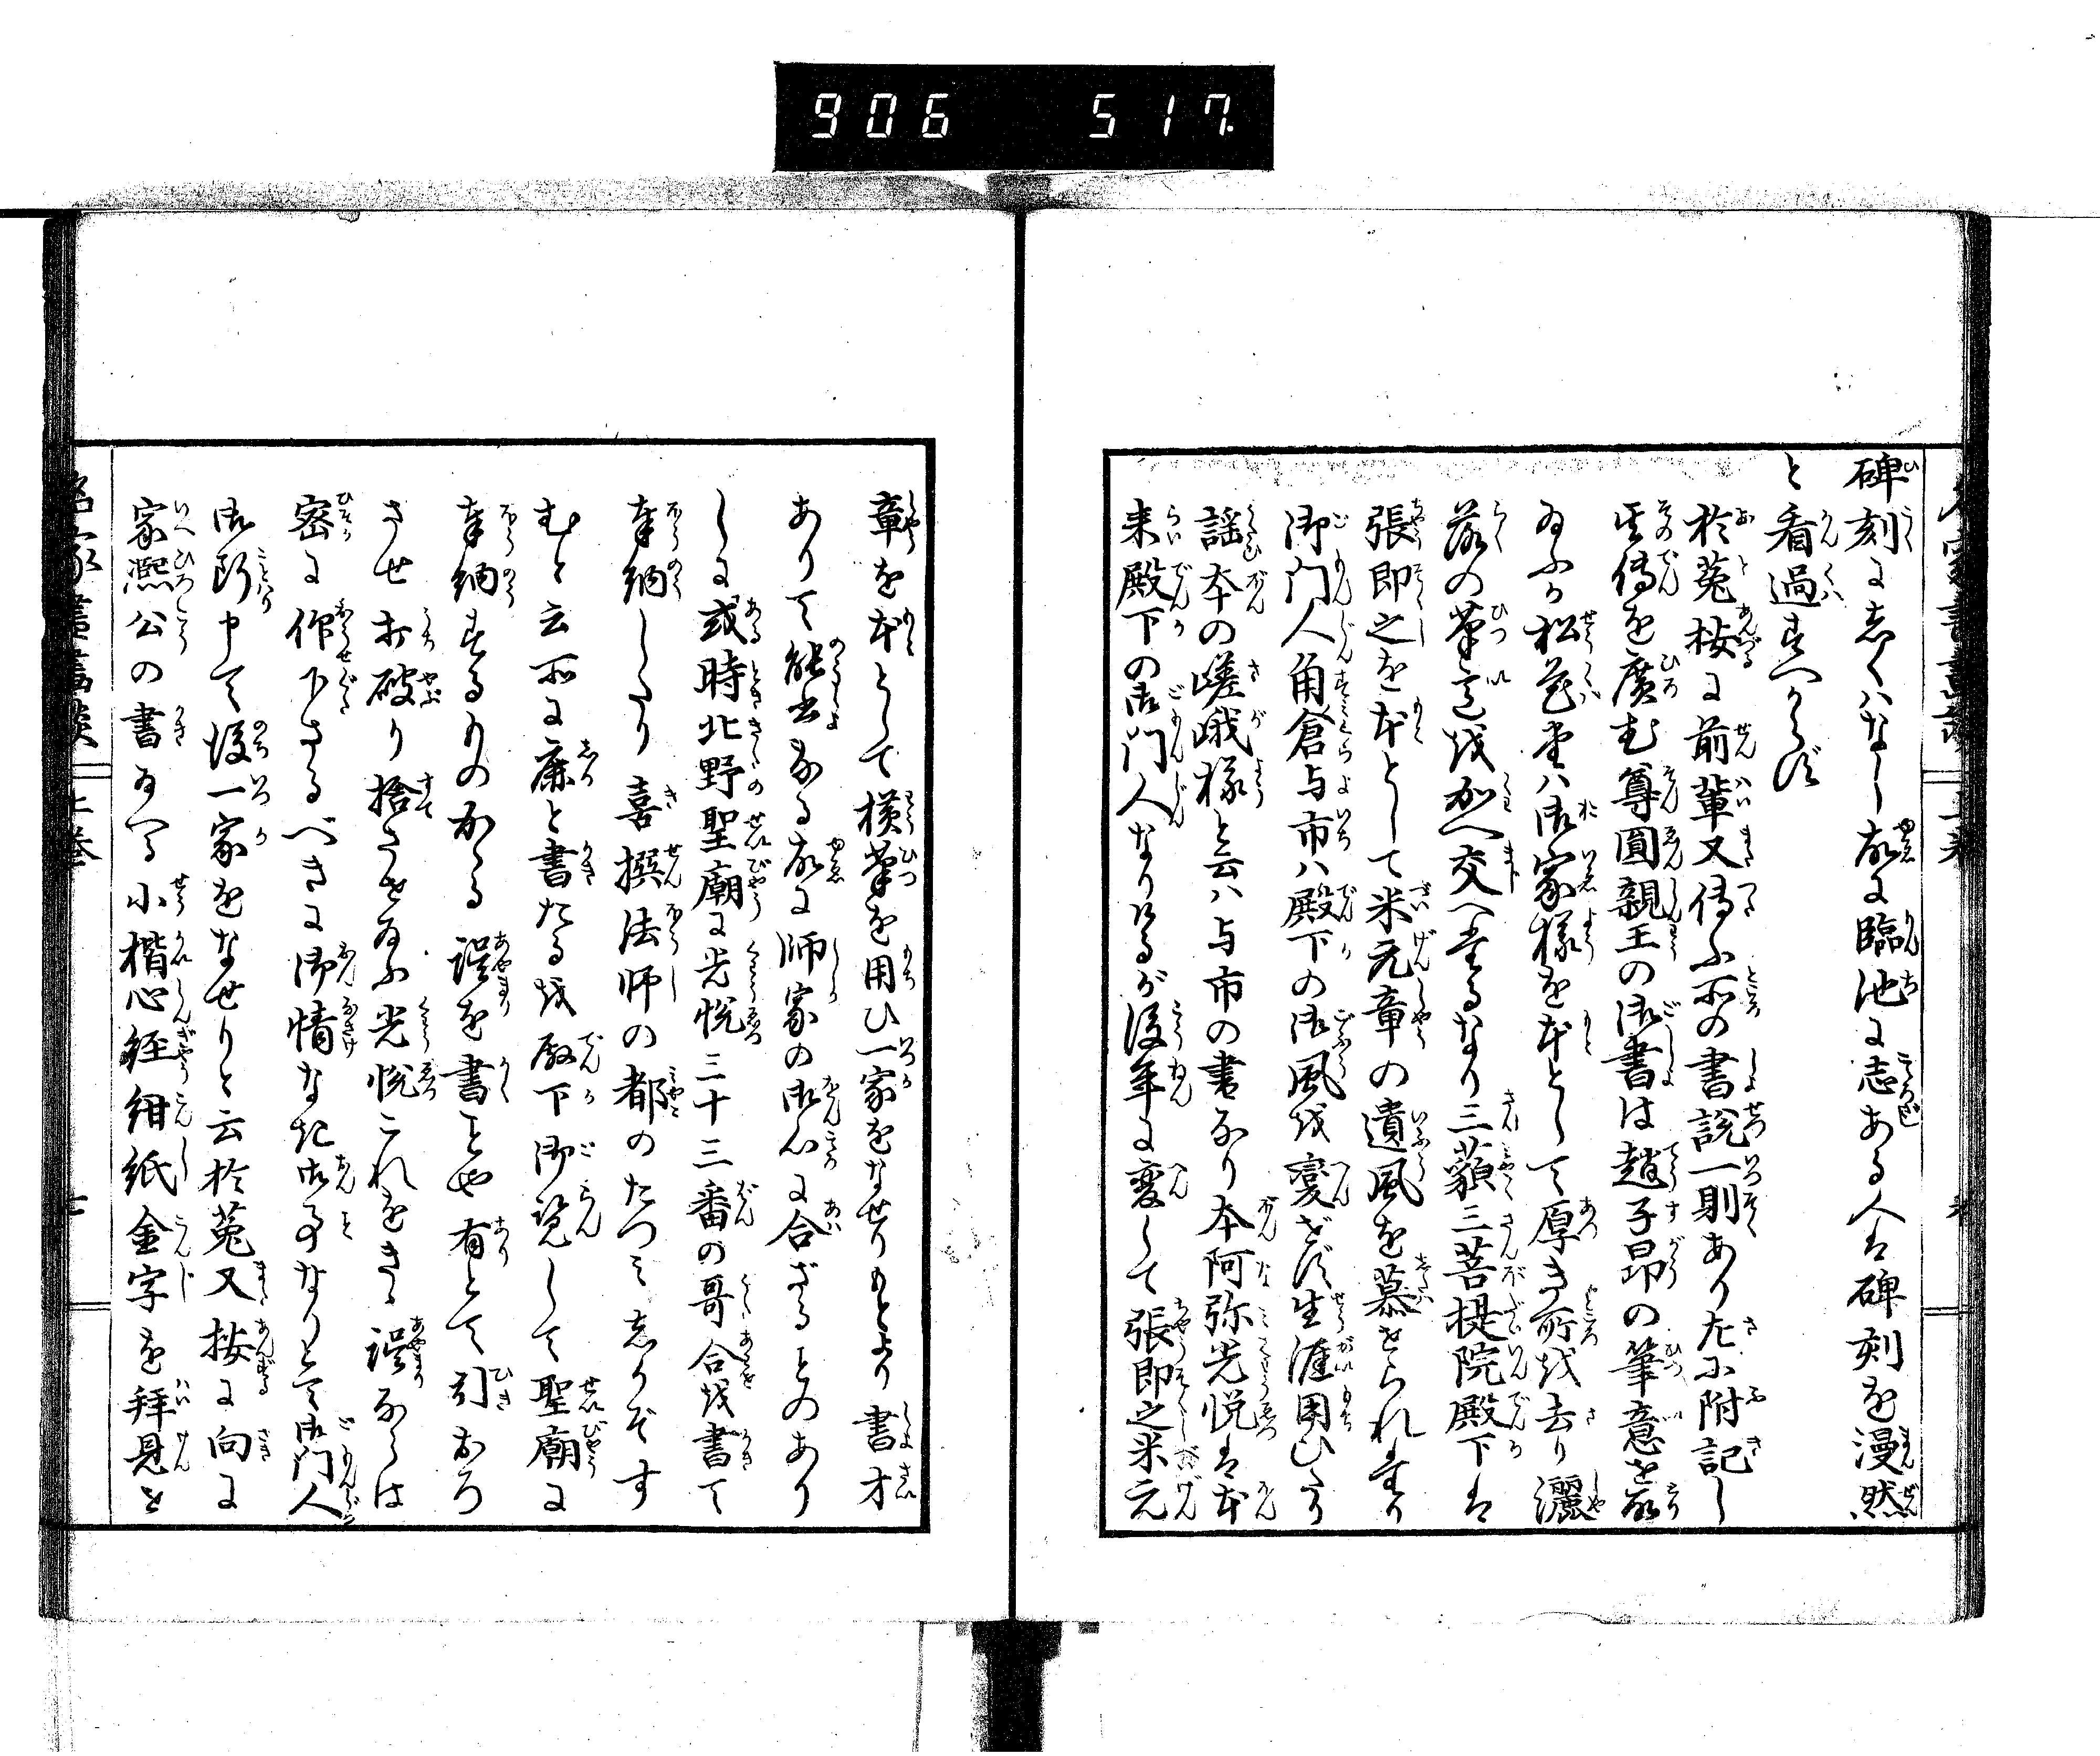 906 517
碑刻に志くハなし故に臨池に志ある人は碑刻を漫然
と看過すへからず
於菟按に前輩又傳ふ所の書説一則あり左に附記し
其傳を廣む尊圓親王の御書は趙子昂の筆意を取
給ふか松花堂ハ御家様を本として厚き所を去り灑
落の筆意を加へ交へたるなり三藐三菩提院殿下は
張即之を本として米元章の遺風を慕せられたり
御門人角倉与市ハ殿下の御風を変ぜず生涯用ひたり
謡本の嵯峨様と云ハ与市の書なり本阿弥光悦は本
来殿下の御門人なりけるが後年に変して張即之米元
章を本として横筆を用ひ一家をなせりもとより書才
ありて能書なる故に師家の御心に合ざることのあり
しに或時北野聖廟に光悦三十三番の哥合を書て
奉納したり喜撰法師の都のたつみ志かぞす
むと云所に廉と書たるを殿下御覧して聖廟に
奉納するものかゝる誤を書ことや有とて引おろ
させ打破り捨させ給ふ光悦これをきゝ誤ならは
密に仰下さるべきに御情なき御事なりとて御門人
御断申て後一家をなせりと云於菟又按に向に
家熙公の書給へる小楷心経紺紙金字を拝見せ
上巻
七